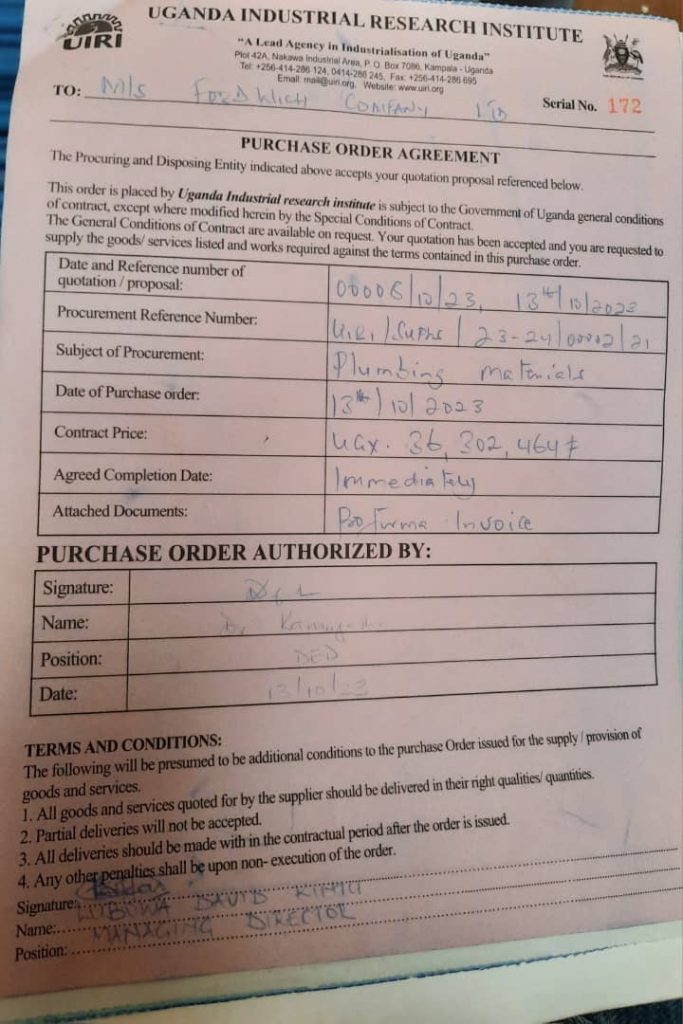 UIRI
UGANDA INDUSTRIAL RESEARCH INSTITUTE
"A Lead Agency in Industrialisation of Uganda"
Plot 42A, Nakawa Industrial Area, P. O. Box 7086, Kampala - Uganda
Tel: +256-414-286 124, 0414-286 245, Fax: +256-414-286 695
Email: mail@uiri.org, Website: www.uiri.org
TO: M/s COMPANY LTD Serial No. 172
PURCHASE ORDER AGREEMENT
The Procuring and Disposing Entity indicated above accepts your quotation proposal referenced below.
This order is placed by Uganda Industrial research institute is subject to the Government of Uganda general conditions
of contract, except where modified herein by the Special Conditions of Contract.
The General Conditions of Contract are available on request. Your quotation has been accepted and you are requested to
supply the goods/ services listed and works required against the terms contained in this purchase order.
Date and Reference number of
quotation / proposal: 13th/10/2023
Procurement Reference Number: 23-24/00002/21
Subject of Procurement: Plumbing materials
Date of Purchase order: 13th/10/2023
Contract Price: UGX. 36,302,464/=
Agreed Completion Date: Immediately
Attached Documents: Profurma Invoice
PURCHASE ORDER AUTHORIZED BY:
Signature:
Name: Dr
Position: DED
Date: 13/10/23
TERMS AND CONDITIONS:
The following will be presumed to be additional conditions to the purchase Order issued for the supply / provision of
goods and services.
1. All goods and services quoted for by the supplier should be delivered in their right qualities/ quantities.
2. Partial deliveries will not be accepted.
3. All deliveries should be made with in the contractual period after the order is issued.
4. Any other penalties shall be upon non- execution of the order.
Signature:
Name: LUBUWA DAVID
Position: MANAGING DIRECTOR